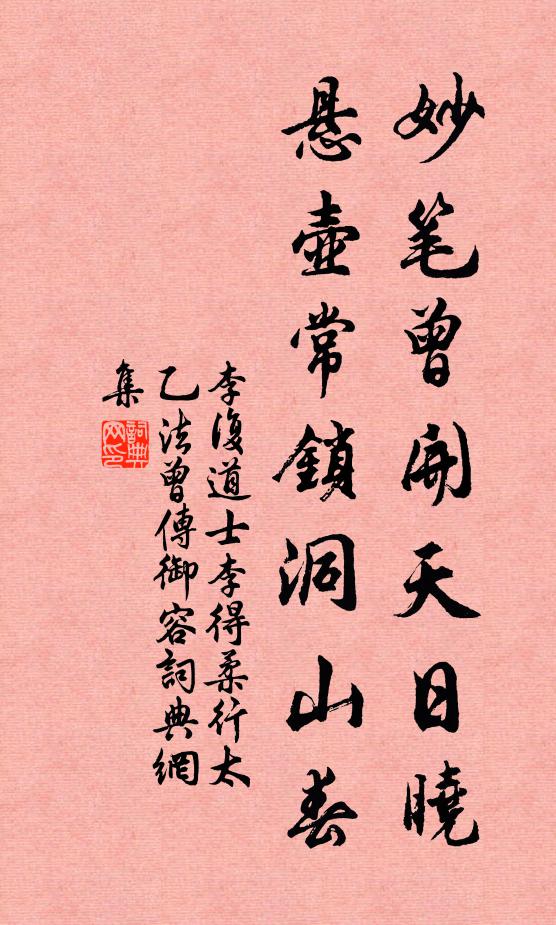 妙笔曾開天日曉
悬壺常鎖洞山春
李復道士李得柔行太
乙法曾傳御容詞典網
集
詞典
网印